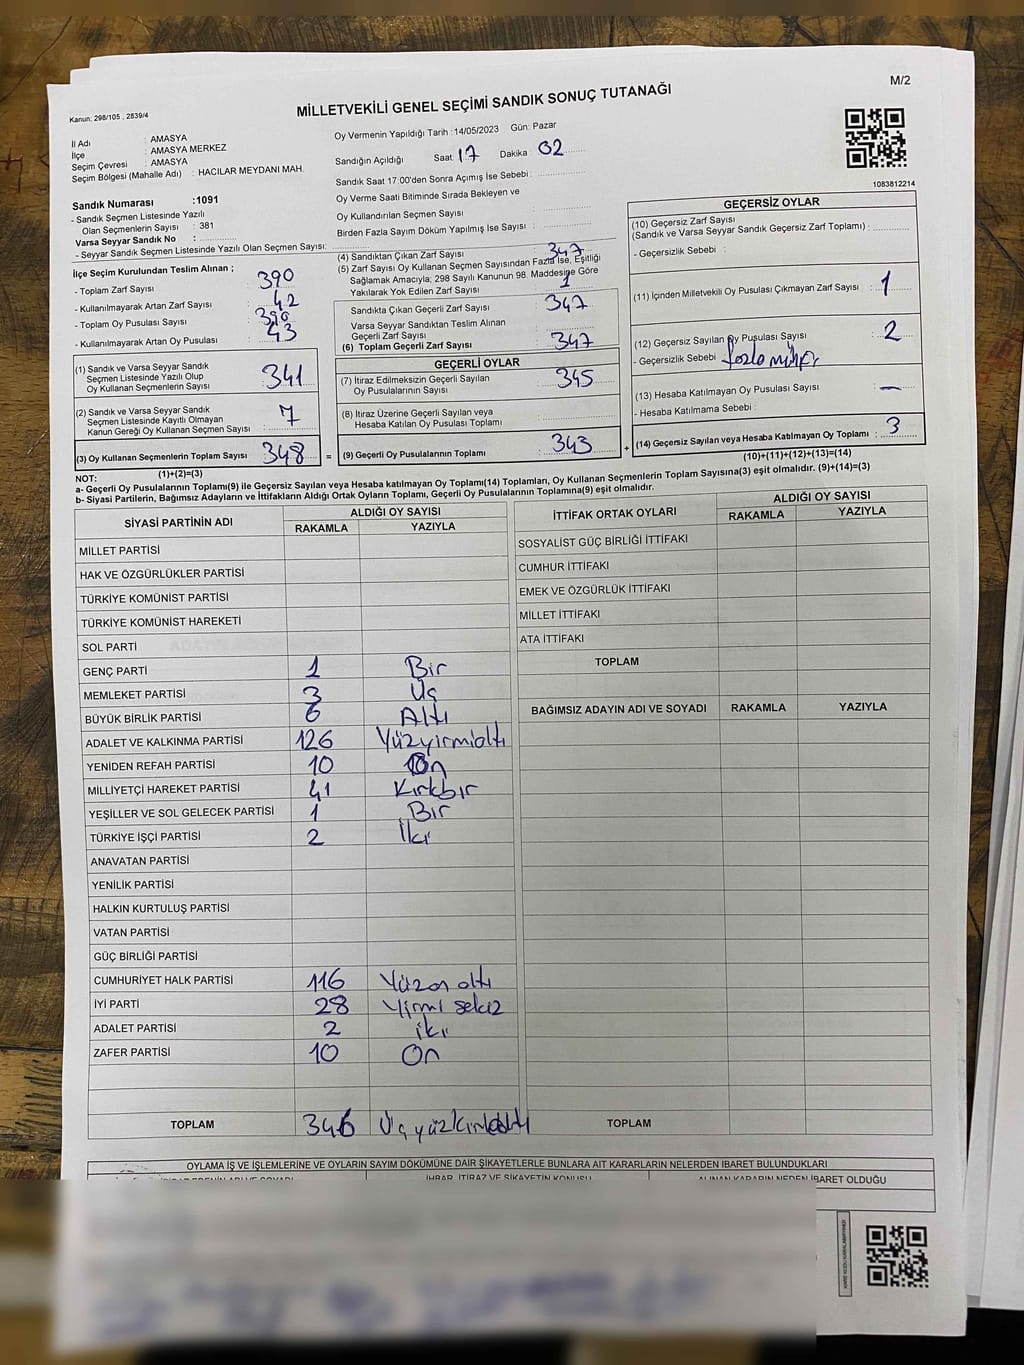 M/2
Kanun: 298/105 , 2839/4
MİLLETVEKİLİ GENEL SEÇİMİ SANDIK SONUÇ TUTANAĞI
İl Adı : AMASYA
İlçe : AMASYA MERKEZ
Seçim Çevresi : AMASYA
Seçim Bölgesi (Mahalle Adı) : HACILAR MEYDANI MAH.
Oy Vermenin Yapıldığı Tarih : 14/05/2023 Gün: Pazar
Sandığın Açıldığı Saat 17 Dakika 02
Sandık Saat 17:00'den Sonra Açımış İse Sebebi :
Oy Verme Saati Bitiminde Sırada Bekleyen ve
Oy Kullandırılan Seçmen Sayısı :
Birden Fazla Sayım Döküm Yapılmış İse Sayısı :
1083812214
Sandık Numarası :1091
- Sandık Seçmen Listesinde Yazılı
Olan Seçmenlerin Sayısı : 381
Varsa Seyyar Sandık No :
- Seyyar Sandık Seçmen Listesinde Yazılı Olan Seçmen Sayısı:
İlçe Seçim Kurulundan Teslim Alınan ;
- Toplam Zarf Sayısı : 390
- Kullanılmayarak Artan Zarf Sayısı : 42
- Toplam Oy Pusulası Sayısı : 390
- Kullanılmayarak Artan Oy Pusulası : 43
(1) Sandık ve Varsa Seyyar Sandık
Seçmen Listesinde Yazılı Olup
Oy Kullanan Seçmenlerin Sayısı : 341
(2) Sandık ve Varsa Seyyar Sandık
Seçmen Listesinde Kayıtlı Olmayan
Kanun Gereği Oy Kullanan Seçmen Sayısı : 7
(3) Oy Kullanan Seçmenlerin Toplam Sayısı : 348
(1)+(2)=(3)
(4) Sandıktan Çıkan Zarf Sayısı : 347
(5) Zarf Sayısı Oy Kullanan Seçmen Sayısından Fazla İse, Eşitliği
Sağlamak Amacıyla; 298 Sayılı Kanunun 98. Maddesine Göre
Yakılarak Yok Edilen Zarf Sayısı : 1
Sandıkta Çıkan Geçerli Zarf Sayısı : 347
Varsa Seyyar Sandıktan Teslim Alınan
Geçerli Zarf Sayısı :
(6) Toplam Geçerli Zarf Sayısı : 347
GEÇERLİ OYLAR
(7) İtiraz Edilmeksizin Geçerli Sayılan
Oy Pusulalarının Sayısı : 345
(8) İtiraz Üzerine Geçerli Sayılan veya
Hesaba Katılan Oy Pusulası Toplamı :
= (9) Geçerli Oy Pusulalarının Toplamı : 343 +
GEÇERSİZ OYLAR
(10) Geçersiz Zarf Sayısı
(Sandık ve Varsa Seyyar Sandık Geçersiz Zarf Toplamı) :
- Geçersizlik Sebebi :
(11) İçinden Milletvekili Oy Pusulası Çıkmayan Zarf Sayısı : 1
(12) Geçersiz Sayılan Oy Pusulası Sayısı : 2
- Geçersizlik Sebebi :
(13) Hesaba Katılmayan Oy Pusulası Sayısı : —
- Hesaba Katılmama Sebebi :
(14) Geçersiz Sayılan veya Hesaba Katılmayan Oy Toplamı : 3
(10)+(11)+(12)+(13)=(14)
NOT:
a- Geçerli Oy Pusulalarının Toplamı(9) ile Geçersiz Sayılan veya Hesaba katılmayan Oy Toplamı(14) Toplamları, Oy Kullanan Seçmenlerin Toplam Sayısına(3) eşit olmalıdır. (9)+(14)=(3)
b- Siyasi Partilerin, Bağımsız Adayların ve İttifakların Aldığı Ortak Oyların Toplamı, Geçerli Oy Pusulalarının Toplamına(9) eşit olmalıdır.
SİYASİ PARTİNİN ADI ALDIĞI OY SAYISI
RAKAMLA YAZIYLA
MİLLET PARTİSİ
HAK VE ÖZGÜRLÜKLER PARTİSİ
TÜRKİYE KOMÜNİST PARTİSİ
TÜRKİYE KOMÜNİST HAREKETİ
SOL PARTİ
GENÇ PARTİ 1 Bir
MEMLEKET PARTİSİ 3 Üç
BÜYÜK BİRLİK PARTİSİ 6 Altı
ADALET VE KALKINMA PARTİSİ 126 Yüzyirmialtı
YENİDEN REFAH PARTİSİ 10 On
MİLLİYETÇİ HAREKET PARTİSİ 41 Kırkbir
YEŞİLLER VE SOL GELECEK PARTİSİ 1 Bir
TÜRKİYE İŞÇİ PARTİSİ 2 İki
ANAVATAN PARTİSİ
YENİLİK PARTİSİ
HALKIN KURTULUŞ PARTİSİ
VATAN PARTİSİ
GÜÇ BİRLİĞİ PARTİSİ
CUMHURİYET HALK PARTİSİ 116 Yüzon altı
İYİ PARTİ 28 Yirmi sekiz
ADALET PARTİSİ 2 iki
ZAFER PARTİSİ 10 On
TOPLAM 346 Üçyüzkırkaltı
İTTİFAK ORTAK OYLARI ALDIĞI OY SAYISI
RAKAMLA YAZIYLA
SOSYALİST GÜÇ BİRLİĞİ İTTİFAKI
CUMHUR İTTİFAKI
EMEK VE ÖZGÜRLÜK İTTİFAKI
MİLLET İTTİFAKI
ATA İTTİFAKI
TOPLAM
BAĞIMSIZ ADAYIN ADI VE SOYADI RAKAMLA YAZIYLA
TOPLAM
OYLAMA İŞ VE İŞLEMLERİNE VE OYLARIN SAYIM DÖKÜMÜNE DAİR ŞİKAYETLERLE BUNLARA AİT KARARLARIN NELERDEN İBARET BULUNDUKLARI
İHBAR, İTİRAZ VE ŞİKAYETİN KONUSU
ALINAN KARARIN NEDEN İBARET OLDUĞU